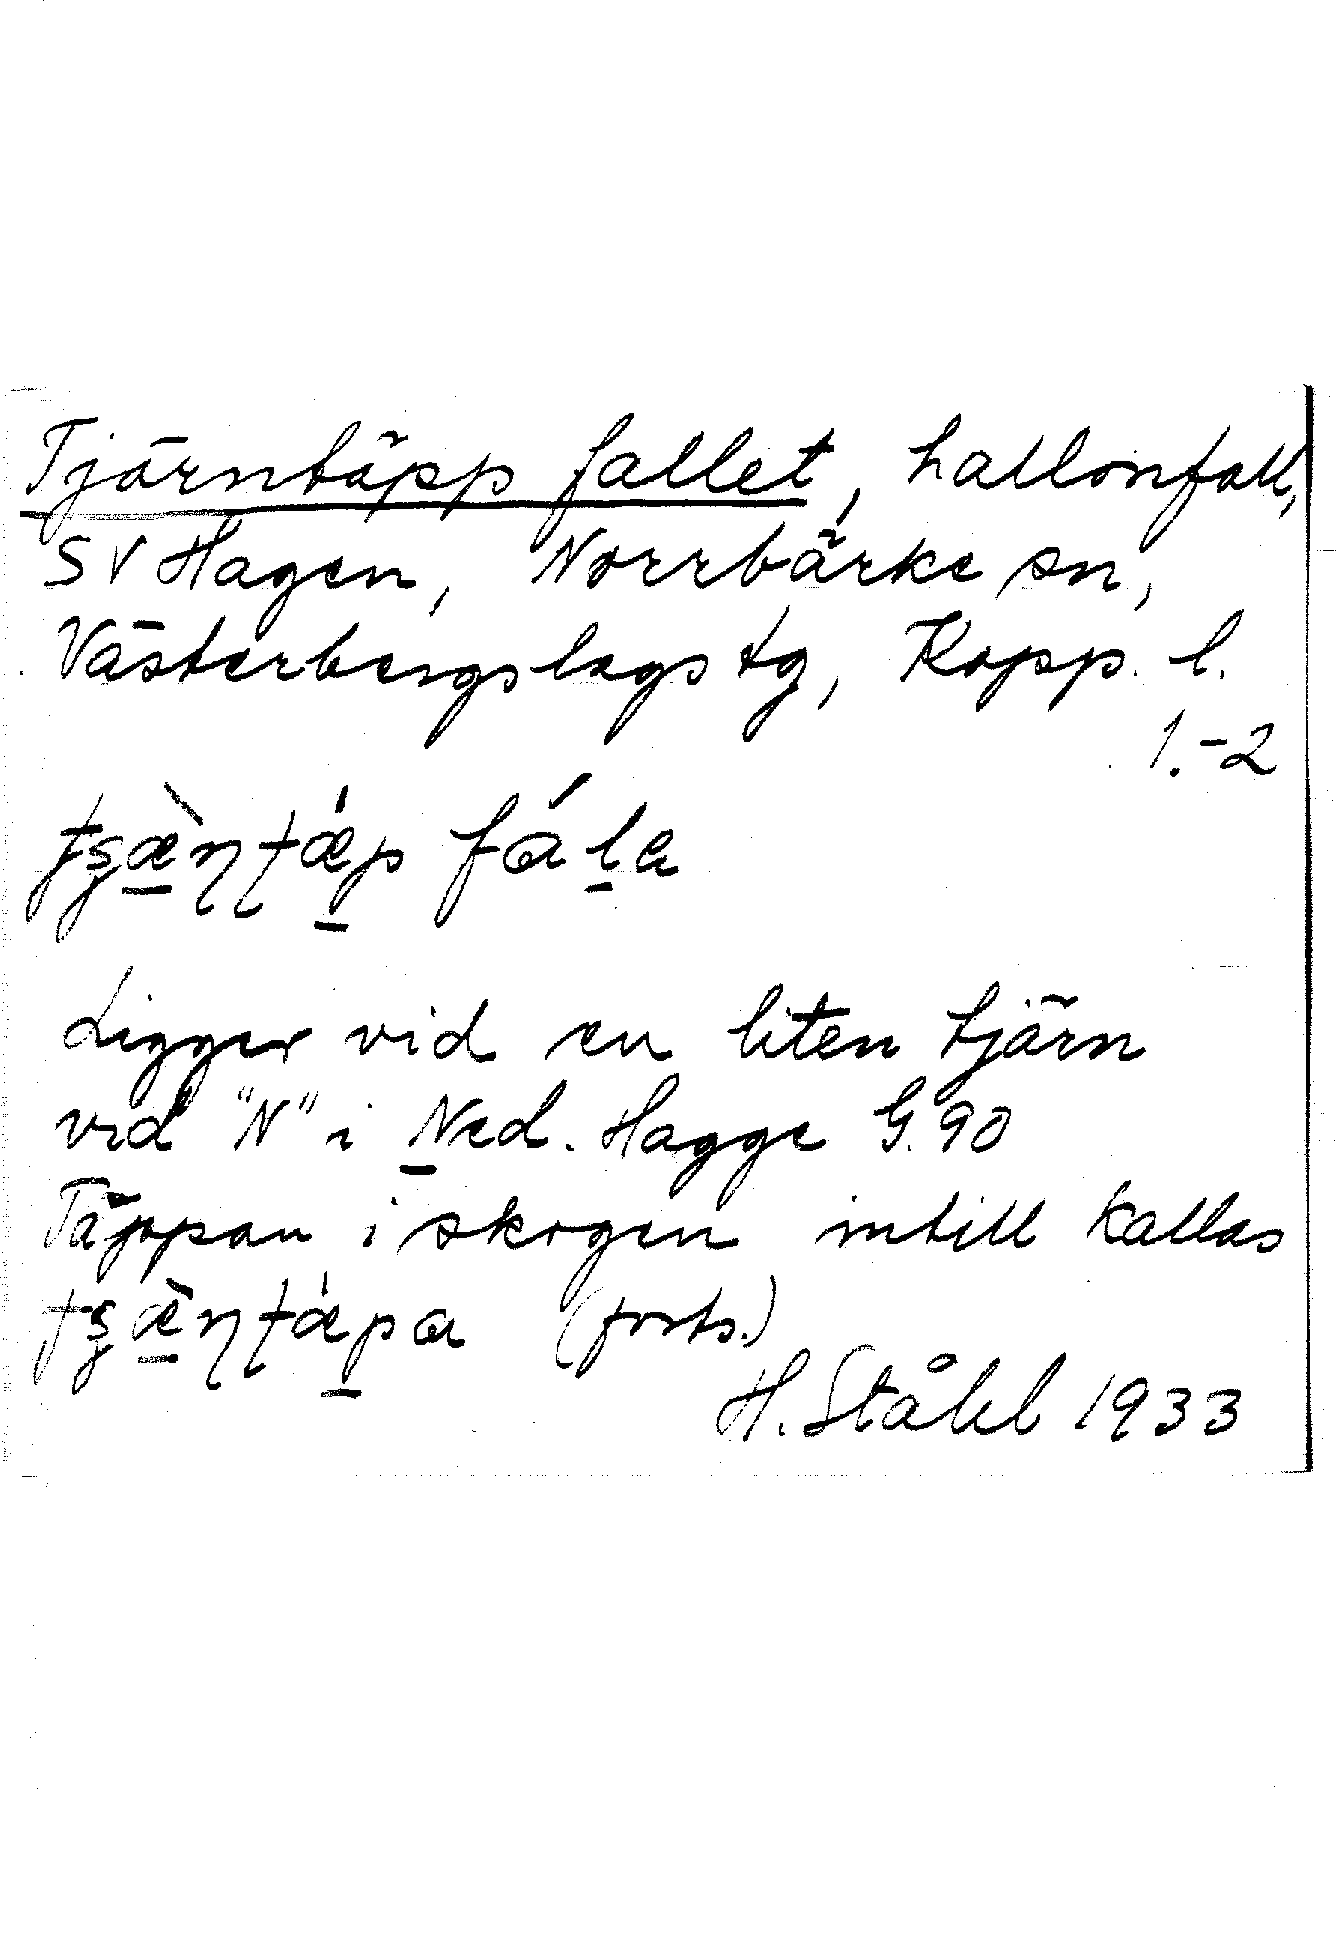 Tjärntäpp fallet, hallonfall,
SV Hagen, Norrbärke sn,
Västerbergslags tg, Kopp. l.
1.-2
fála
Ligger vid en liten tjärn
vid "N" i Ned. Hagge G. 90
Täppan i skogen intill kallas
(forts.)
H. Ståhl 1933